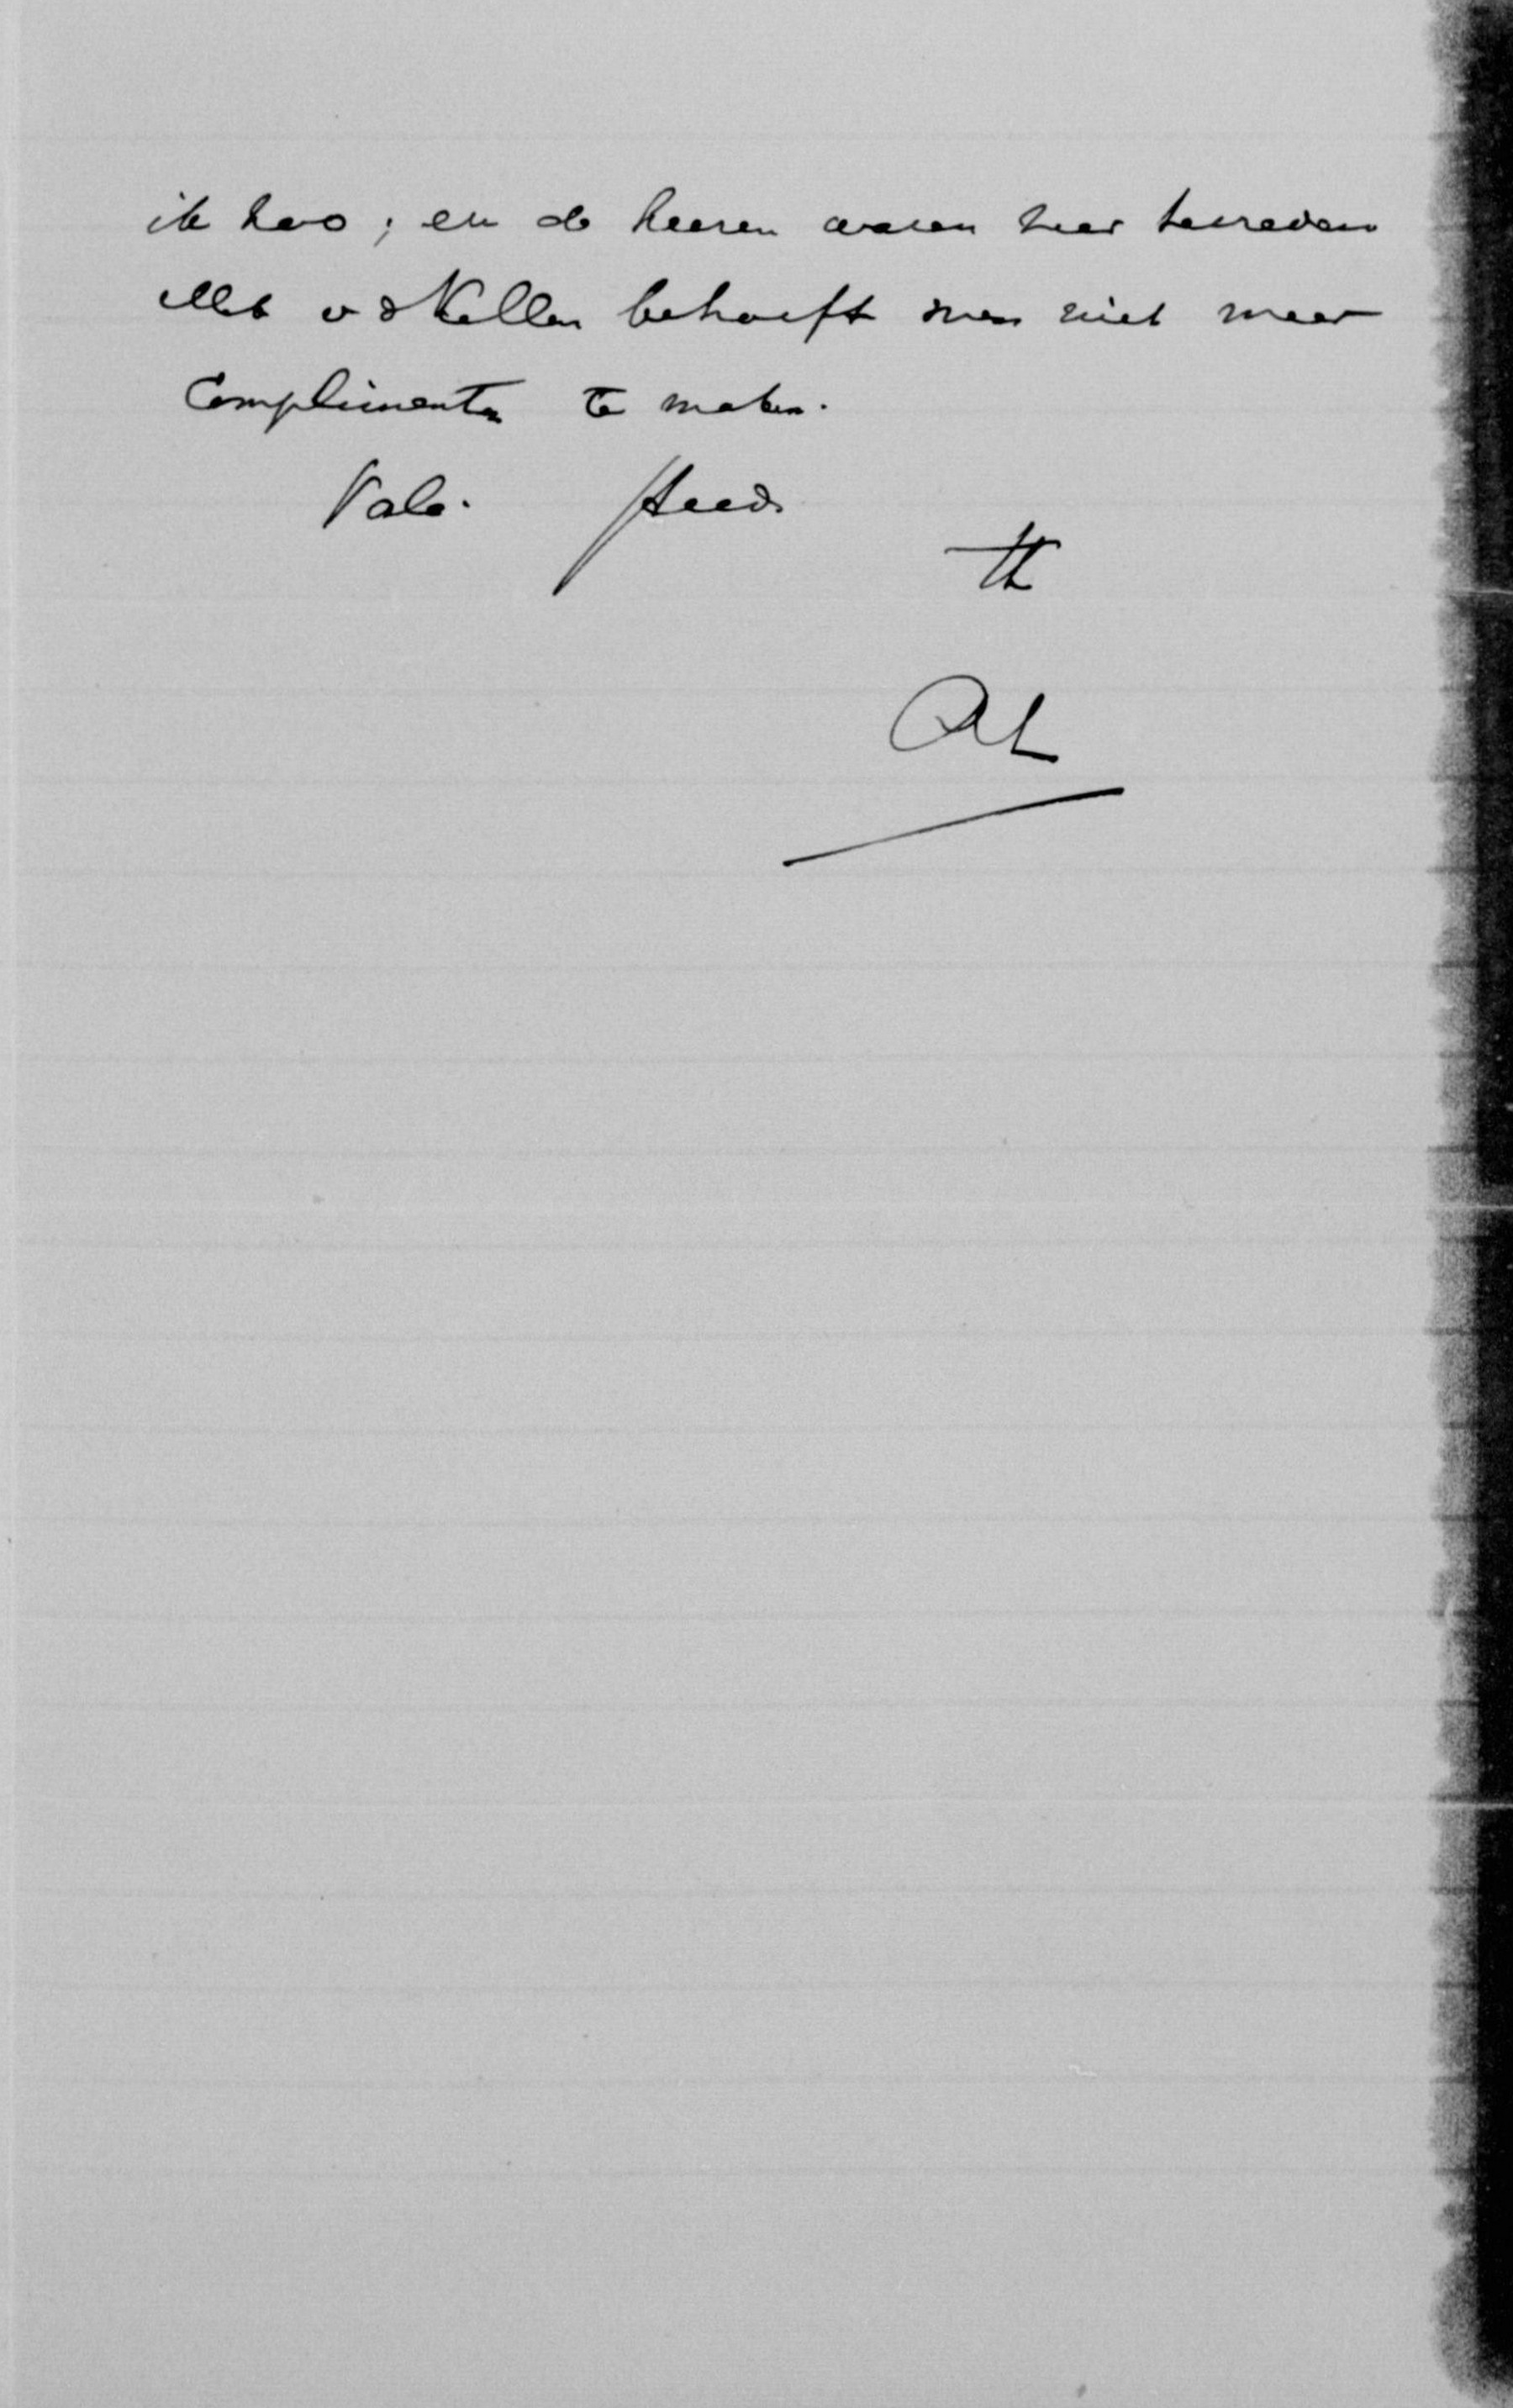 ik heb; en de heeren waren zeer tevreden
Met v d Kellen behoeft men niet meer
Complimenten te maken.
Vale. Steeds
tt